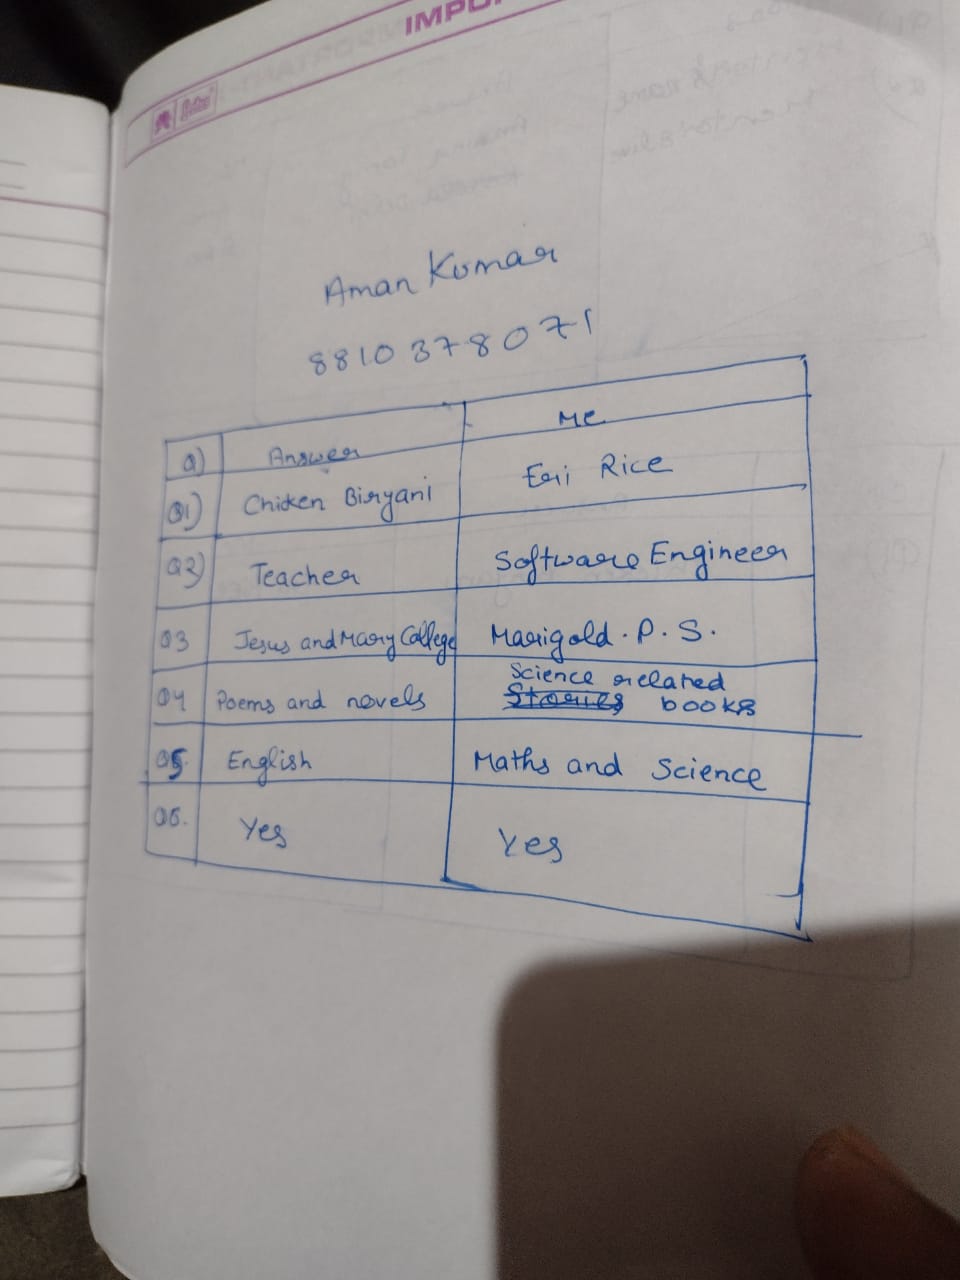 IMPO
Aman Kumar
8810378071
Q) Answer Me
Q1) Chicken Biryani Rice
Q2) Teacher Software Engineer
Q3 Jesus and Mary College Marigold. P. S.
Q4 Poems and novels Science related Stories books
Q5. English Maths and Science
Q6. Yes Yes